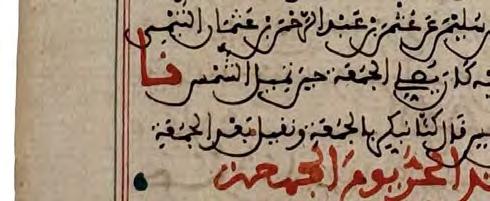 سليمن عن عثمن بن عبد الرحمن بن عثمان التيمي
كان يصلي الجمعة حين تميل الشمس نا
قال كنا نبكر بالجمعة ونقيل بعد الجمعة
الحر يوم الجمعة